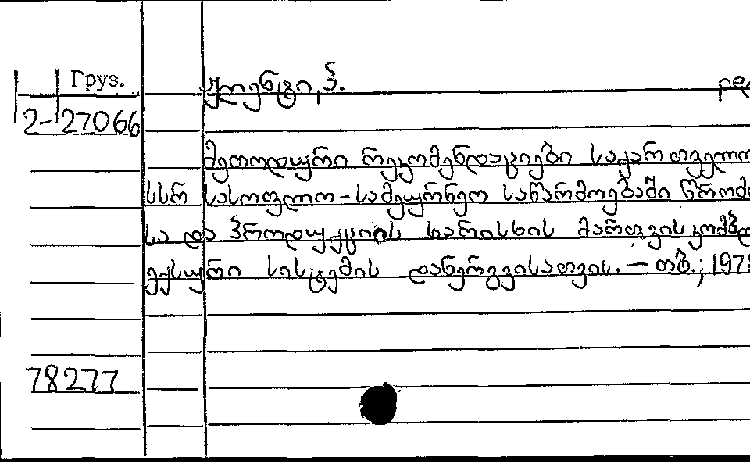 Груз.
ჟღენტი, პ. რед
2-27066
მეთოდური რეკომენდაციები საქართველო
სსრ სასოფლო-სამეურნეო საწარმოებაში შრომი
სა და პროდუქციის ხარისხის მართვის კომპლ
ექსური სისტემის დანერგვისათვის. — თბ.; 197
78277